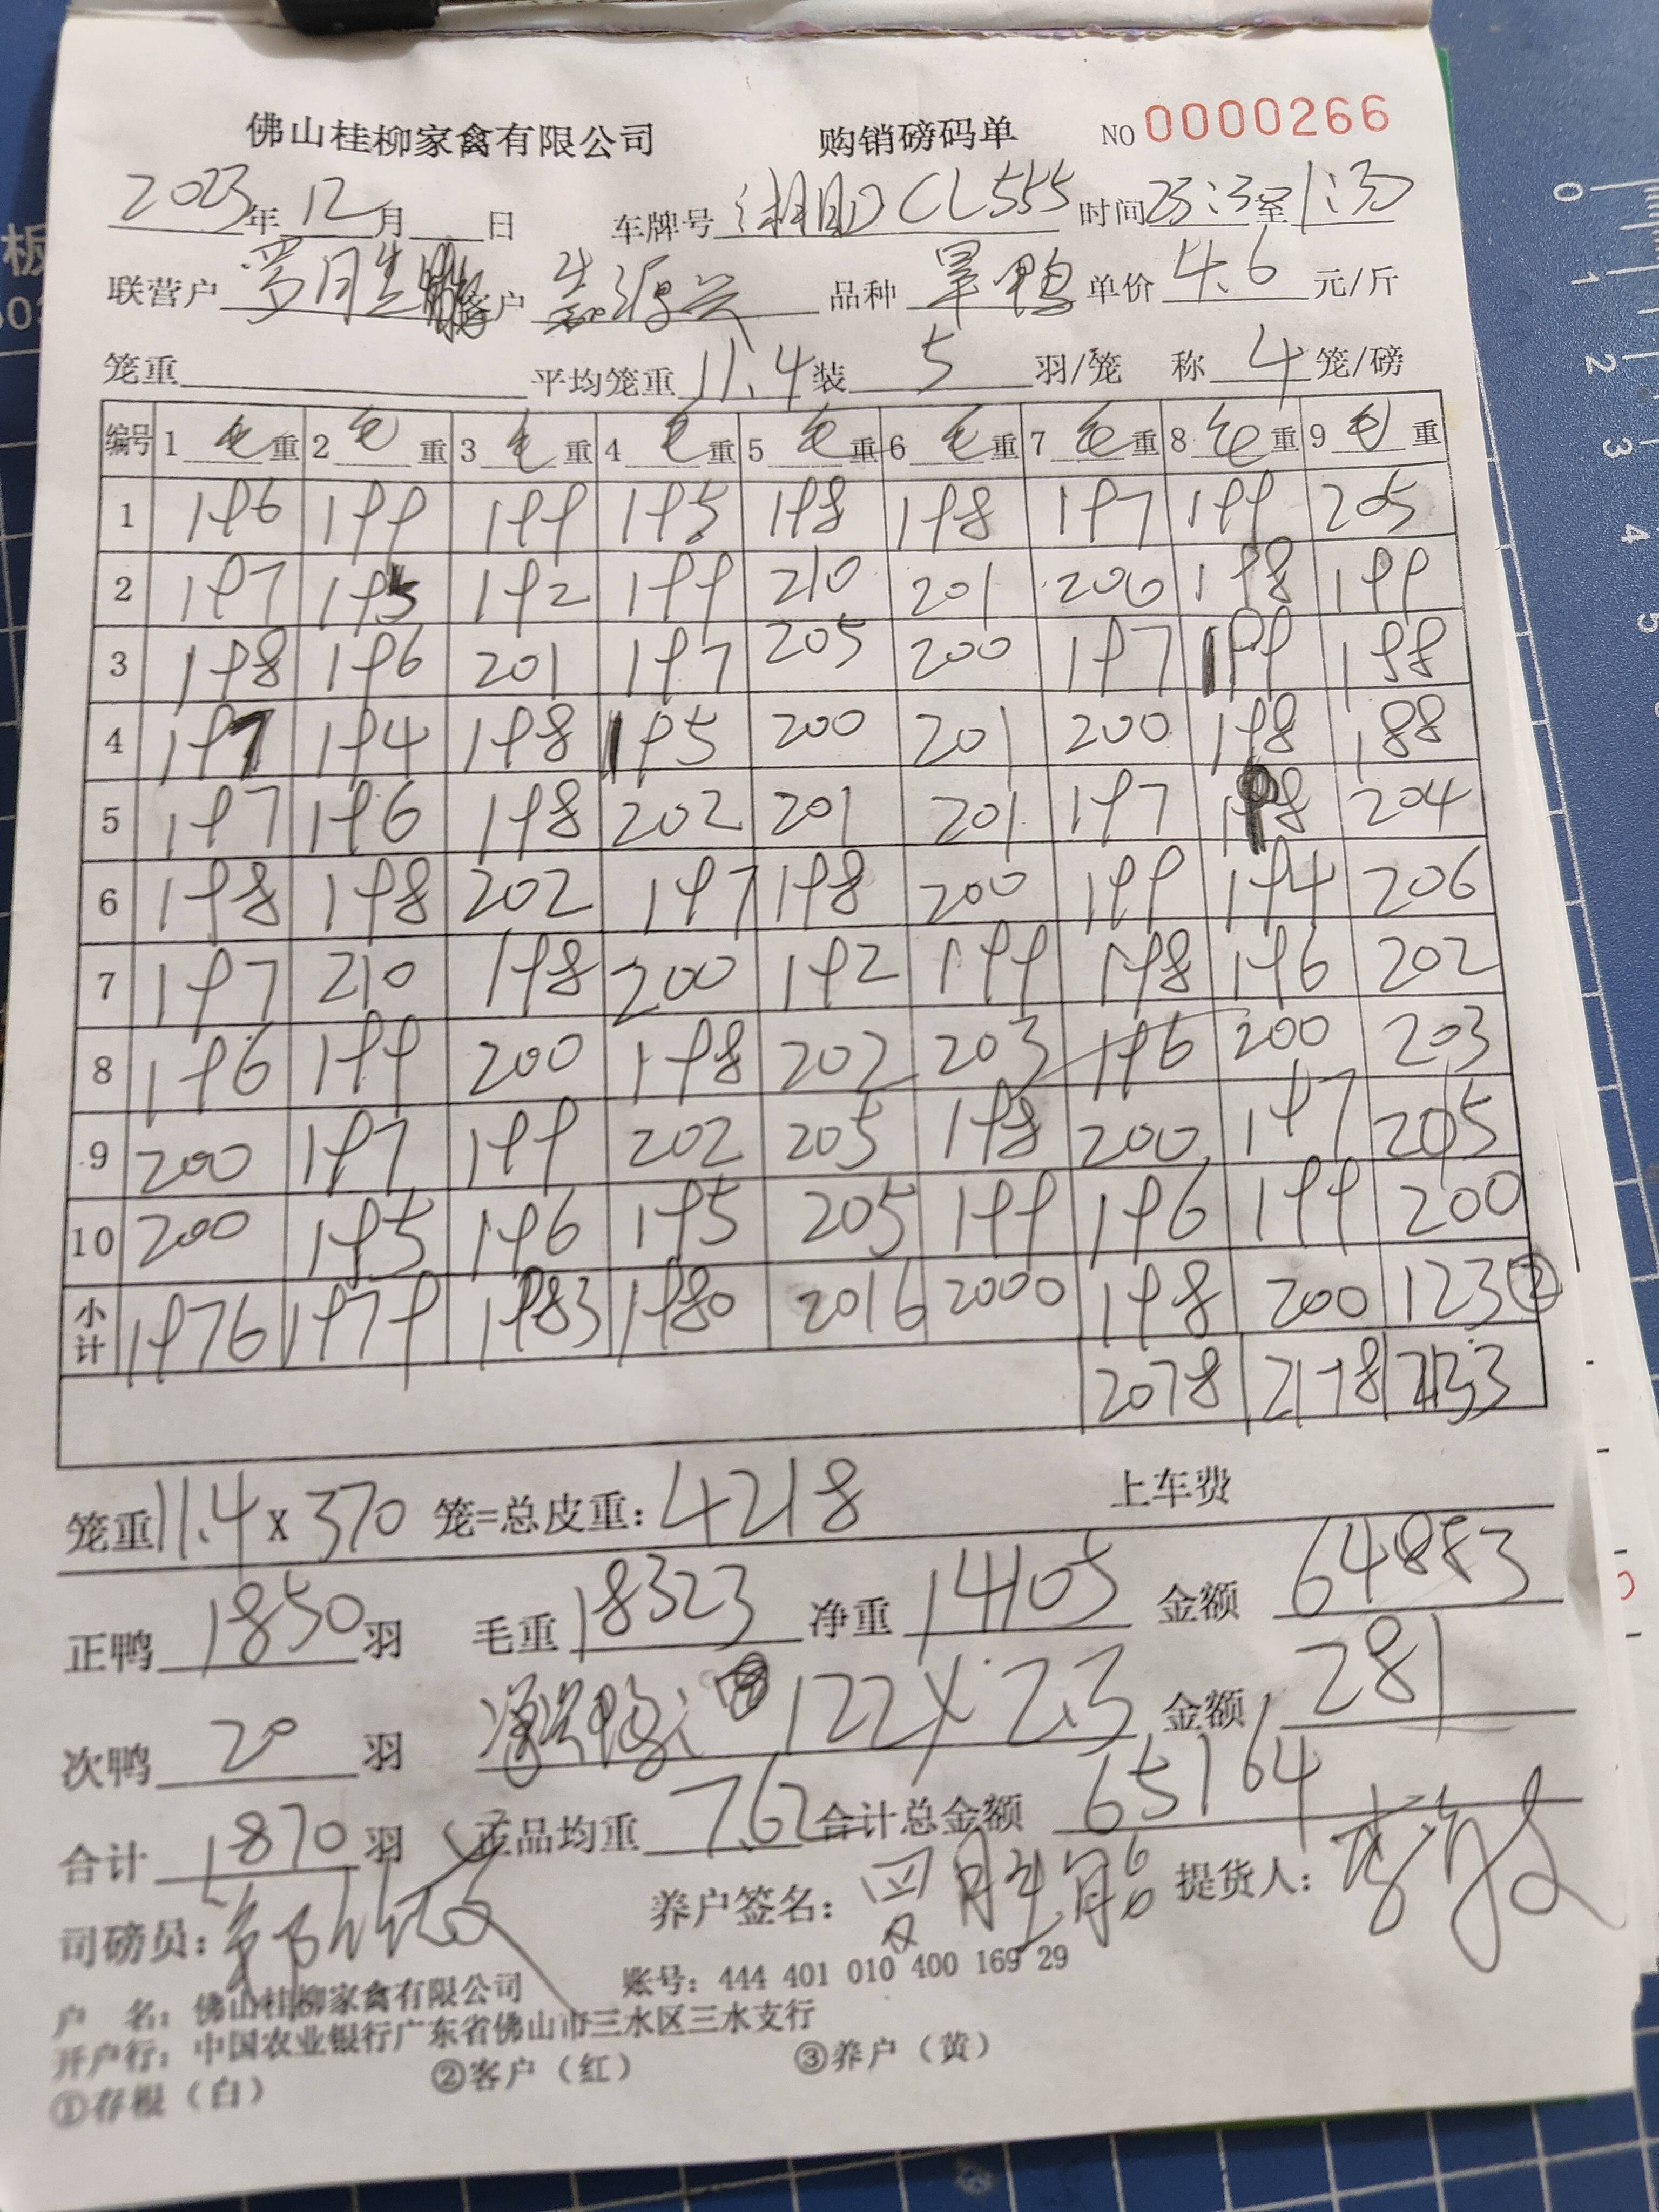 佛山桂柳家禽有限公司 购销磅码单 NO 0000266
2023年12月 日 车牌号 湘 CL555 时间 至
联营户 客户 品种 单价 4.6 元/斤
笼重 平均笼重 11.4 装 5 羽/笼 称 4 笼/磅
编号 1 毛 重 2 毛 重 3 毛 重 4 毛 重 5 毛 重 6 毛 重 7 毛 重 8 毛 重 9 毛 重
1 196 199 199 195 198 198 197 199 205
2 197 195 192 199 210 201 200 198 199
3 198 196 201 197 205 200 197 199 198
4 197 194 198 195 200 201 200 198 188
5 197 196 198 202 201 201 197 198 204
6 198 198 202 197 198 200 199 194 206
7 197 210 198 200 192 199 198 196 202
8 196 199 200 198 202 203 196 200 203
9 200 197 199 202 205 198 200 197 205
10 200 195 196 195 205 199 196 199 200
小计 1976 1979 1983 1980 2016 2000 198 200 123②
2178 2133
笼重 11.4 x 370 笼=总皮重: 4218 上车费
正鸭 1850 羽 毛重 18323 净重 14105 金额 64883
次鸭 20 羽 122 x 2.3 金额 281
合计 1870 羽 正品均重 7.62 合计总金额 65164
司磅员: 养户签名: 提货人:
户 名: 佛山桂柳家禽有限公司 账号: 444 401 010 400 169 29
开户行: 中国农业银行广东省佛山市三水区三水支行
①存根（白） ②客户（红） ③养户（黄）